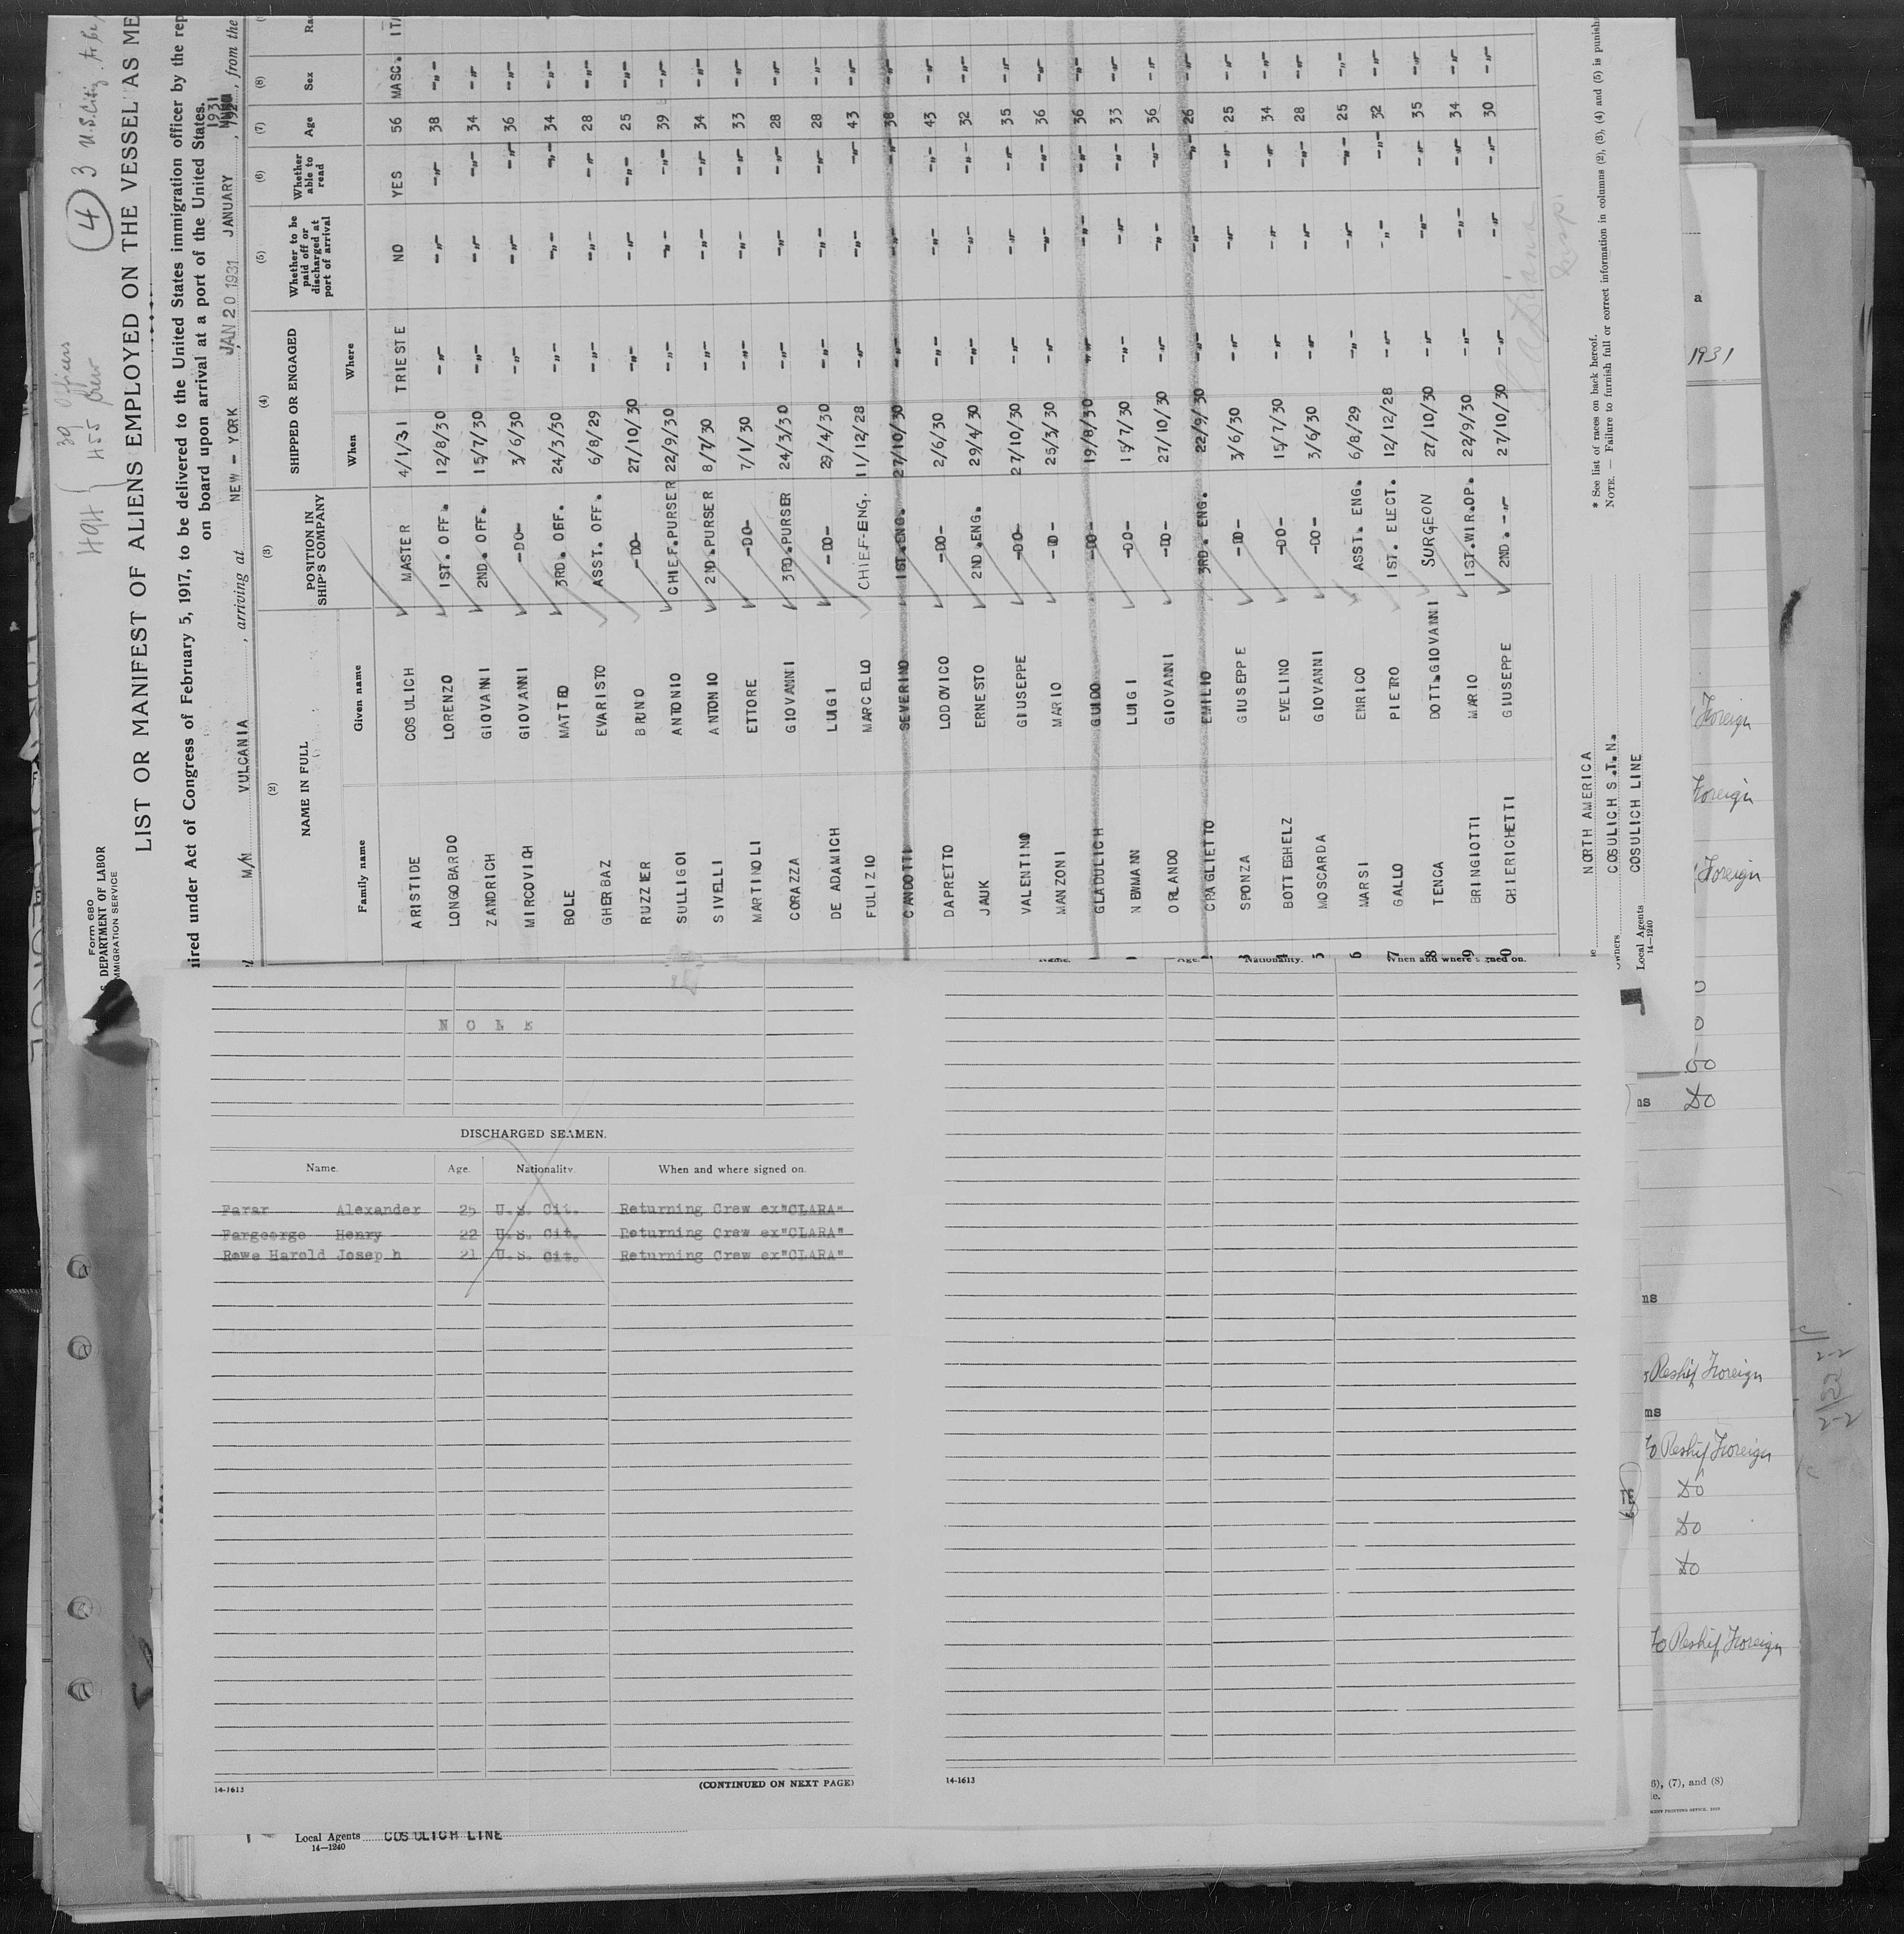 39 Officers
494 { 455 Crew
(4) 3 U.S. Citiz. to be
Form 680
DEPARTMENT OF LABOR
IMMIGRATION SERVICE
LIST OR MANIFEST OF ALIENS EMPLOYED ON THE VESSEL AS ME
uired under Act of Congress of February 5, 1917, to be delivered to the United States immigration officer by the rep
on board upon arrival at a port of the United States.
M/N VULCANIA , arriving at NEW-YORK JAN 20 1931 JANUARY , 1931 , from the
(2) (3) (4) (5) (6) (7) (8)
NAME IN FULL POSITION IN SHIP'S COMPANY SHIPPED OR ENGAGED Whether to be paid off or discharged at port of arrival Whether able to read Age Sex
Family name Given name When Where
ARISTIDE COSULICH MASTER 4/1/31 TRIESTE NO YES 56 MASC.
LONGOBARDO LORENZO 1ST. OFF. 12/8/30 -"- -"- -"- 38 -"-
ZANDRICH GIOVANNI 2ND. OFF. 15/7/30 -"- -"- -"- 34 -"-
MIRCOVICH GIOVANNI -DO- 3/6/30 -"- -"- -"- 36 -"-
BOLE MATTEO 3RD. OFF. 24/3/30 -"- -"- -"- 34 -"-
GHERBAZ EVARISTO ASST. OFF. 6/8/29 -"- -"- -"- 28 -"-
RUZZIER BRUNO -DO- 27/10/30 -"- -"- -"- 25 -"-
SULLIGOI ANTONIO CHIEF.PURSER 22/9/30 -"- -"- -"- 39 -"-
SIVELLI ANTONIO 2ND.PURSER 8/7/30 -"- -"- -"- 34 -"-
MARTINOLI ETTORE -DO- 7/1/30 -"- -"- -"- 33 -"-
CORAZZA GIOVANNI 3RD.PURSER 24/3/30 -"- -"- -"- 28 -"-
DE ADAMICH LUIGI -DO- 29/4/30 -"- -"- -"- 28 -"-
FULIZIO MARCELLO CHIEF-ENG. 11/12/28 -"- -"- -"- 43 -"-
CANDOTTI SEVERINO 1ST.ENG. 27/10/30 -"- -"- -"- 38 -"-
DAPRETTO LODOVICO -DO- 2/6/30 -"- -"- -"- 43 -"-
JAUK ERNESTO 2ND.ENG. 29/4/30 -"- -"- -"- 32 -"-
VALENTINO GIUSEPPE -DO- 27/10/30 -"- -"- -"- 35 -"-
MANZONI MARIO -DO- 25/3/30 -"- -"- -"- 36 -"-
GLADULICH GUIDO -DO- 19/8/30 -"- -"- -"- 36 -"-
NEWMANN LUIGI -DO- 15/7/30 -"- -"- -"- 33 -"-
ORLANDO GIOVANNI -DO- 27/10/30 -"- -"- -"- 36 -"-
CRAGLIETTO EMILIO 3RD. ENG. 22/9/30 -"- -"- -"- 26 -"-
SPONZA GIUSEPPE -DO- 3/6/30 -"- -"- -"- 25 -"-
BOTTEGHELZ EVELINO -DO- 15/7/30 -"- -"- -"- 34 -"-
5 MOSCARDA GIOVANNI -DO- 3/6/30 -"- -"- -"- 28 -"-
6 MARSI ENRICO ASST. ENG. 6/8/29 -"- -"- -"- 25 -"-
7 GALLO PIETRO 1ST. ELECT. 12/12/28 -"- -"- -"- 32 -"-
8 TENCA DOTT.GIOVANNI SURGEON 27/10/30 -"- -"- -"- 35 -"-
9 BRINGIOTTI MARIO 1ST.WIR.OP. 22/9/30 -"- -"- -"- 34 -"-
0 CHIERICHETTI GIUSEPPE 2ND. -"- 27/10/30 -"- -"- -"- 30 -"-
* See list of races on back hereof.
NOTE.—Failure to furnish full or correct information in columns (2), (3), (4) and (5) is punish
NORTH AMERICA
Owners COSULICH S.T.N.
Local Agents COSULICH LINE
14—1240
Name. Age. Nationality. When and where signed on.
NONE
DISCHARGED SEAMEN.
Name. Age. Nationality. When and where signed on.
Farar Alexander 25 U.S. Cit. Returning Crew ex"CLARA"
Fargeorge Henry 22 U.S. Cit. Returning Crew ex"CLARA"
Rowe Harold Joseph 21 U.S. Cit. Returning Crew ex"CLARA"
14-1613 (CONTINUED ON NEXT PAGE)
14-1613
Local Agents COSULICH LINE
14—1240
1931
Foreign
Foreign
Foreign
Do
ns Do
ns
Reship Foreign
ms
To Reship Foreign
Do
Do
Do
To Reship Foreign
6), (7), and (8)